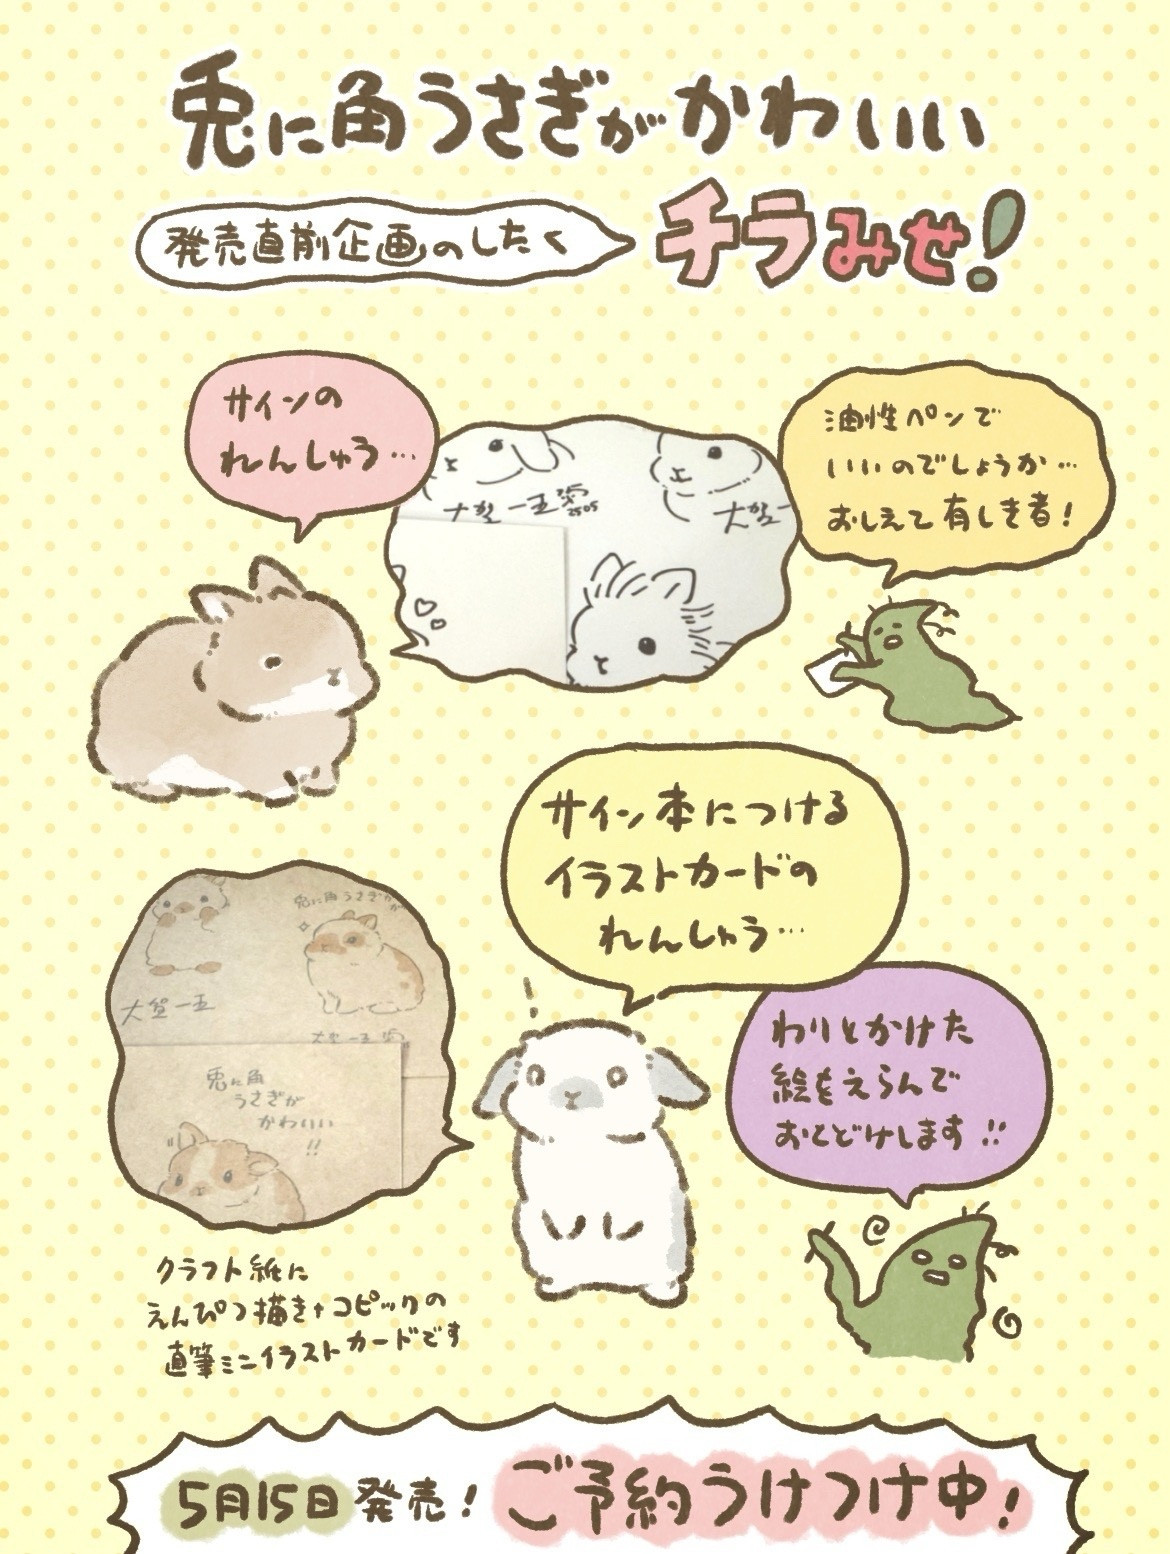 兎に角うさぎがかわいい
発売直前企画のしたく
チラみせ!
サインの
れんしゅう…
油性ペンで
いいのでしょうか…
おしえて有しき者!
大賀一五
2505
サイン本につける
イラストカードの
れんしゅう…
兎に角うさぎがか
大賀一五
大賀一五
兎に角
うさぎが
かわいい
!!
わりとかけた
絵をえらんで
おとどけします!!
クラフト紙に
えんぴつ描き+コピックの
直筆ミニイラストカードです
5月15日発売!ご予約うけつけ中!